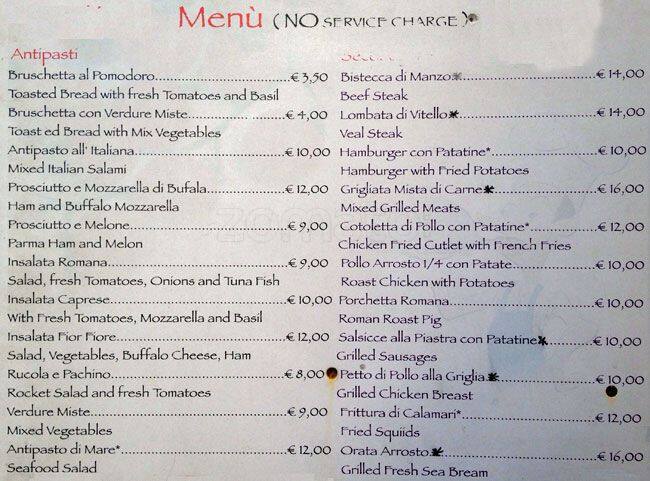 Menù (NO SERVICE CHARGE)
Antipasti
Bruschetta al Pomodoro € 3,50
Toasted Bread with fresh Tomatoes and Basil
Bruschetta con Verdure Miste € 4,00
Toast ed Bread with Mix Vegetables
Antipasto all' Italiana € 10,00
Mixed Italian Salami
Prosciutto e Mozzarella di Bufala € 12,00
Ham and Buffalo Mozzarella
Prosciutto e Melone € 9,00
Parma Ham and Melon
Insalata Romana € 9,00
Salad, fresh Tomatoes, Onions and Tuna Fish
Insalata Caprese € 10,00
With Fresh Tomatoes, Mozzarella and Basil
Insalata Fior Fiore € 12,00
Salad, Vegetables, Buffalo Cheese, Ham
Rucola e Pachino € 8,00
Rocket Salad and fresh Tomatoes
Verdure Miste € 9,00
Mixed Vegetables
Antipasto di Mare* € 12,00
Seafood Salad
Bistecca di Manzo* € 14,00
Beef Steak
Lombata di Vitello* € 14,00
Veal Steak
Hamburger con Patatine* € 10,00
Hamburger with Fried Potatoes
Grigliata Mista di Carne* € 16,00
Mixed Grilled Meats
Cotoletta di Pollo con Patatine* € 12,00
Chicken Fried Cutlet with French Fries
Pollo Arrosto 1/4 con Patate € 10,00
Roast Chicken with Potatoes
Porchetta Romana € 10,00
Roman Roast Pig
Salsicce alla Piastra con Patatine* € 10,00
Grilled Sausages
Petto di Pollo alla Griglia* € 10,00
Grilled Chicken Breast
Frittura di Calamari* € 12,00
Fried Squiids
Orata Arrosto* € 16,00
Grilled Fresh Sea Bream